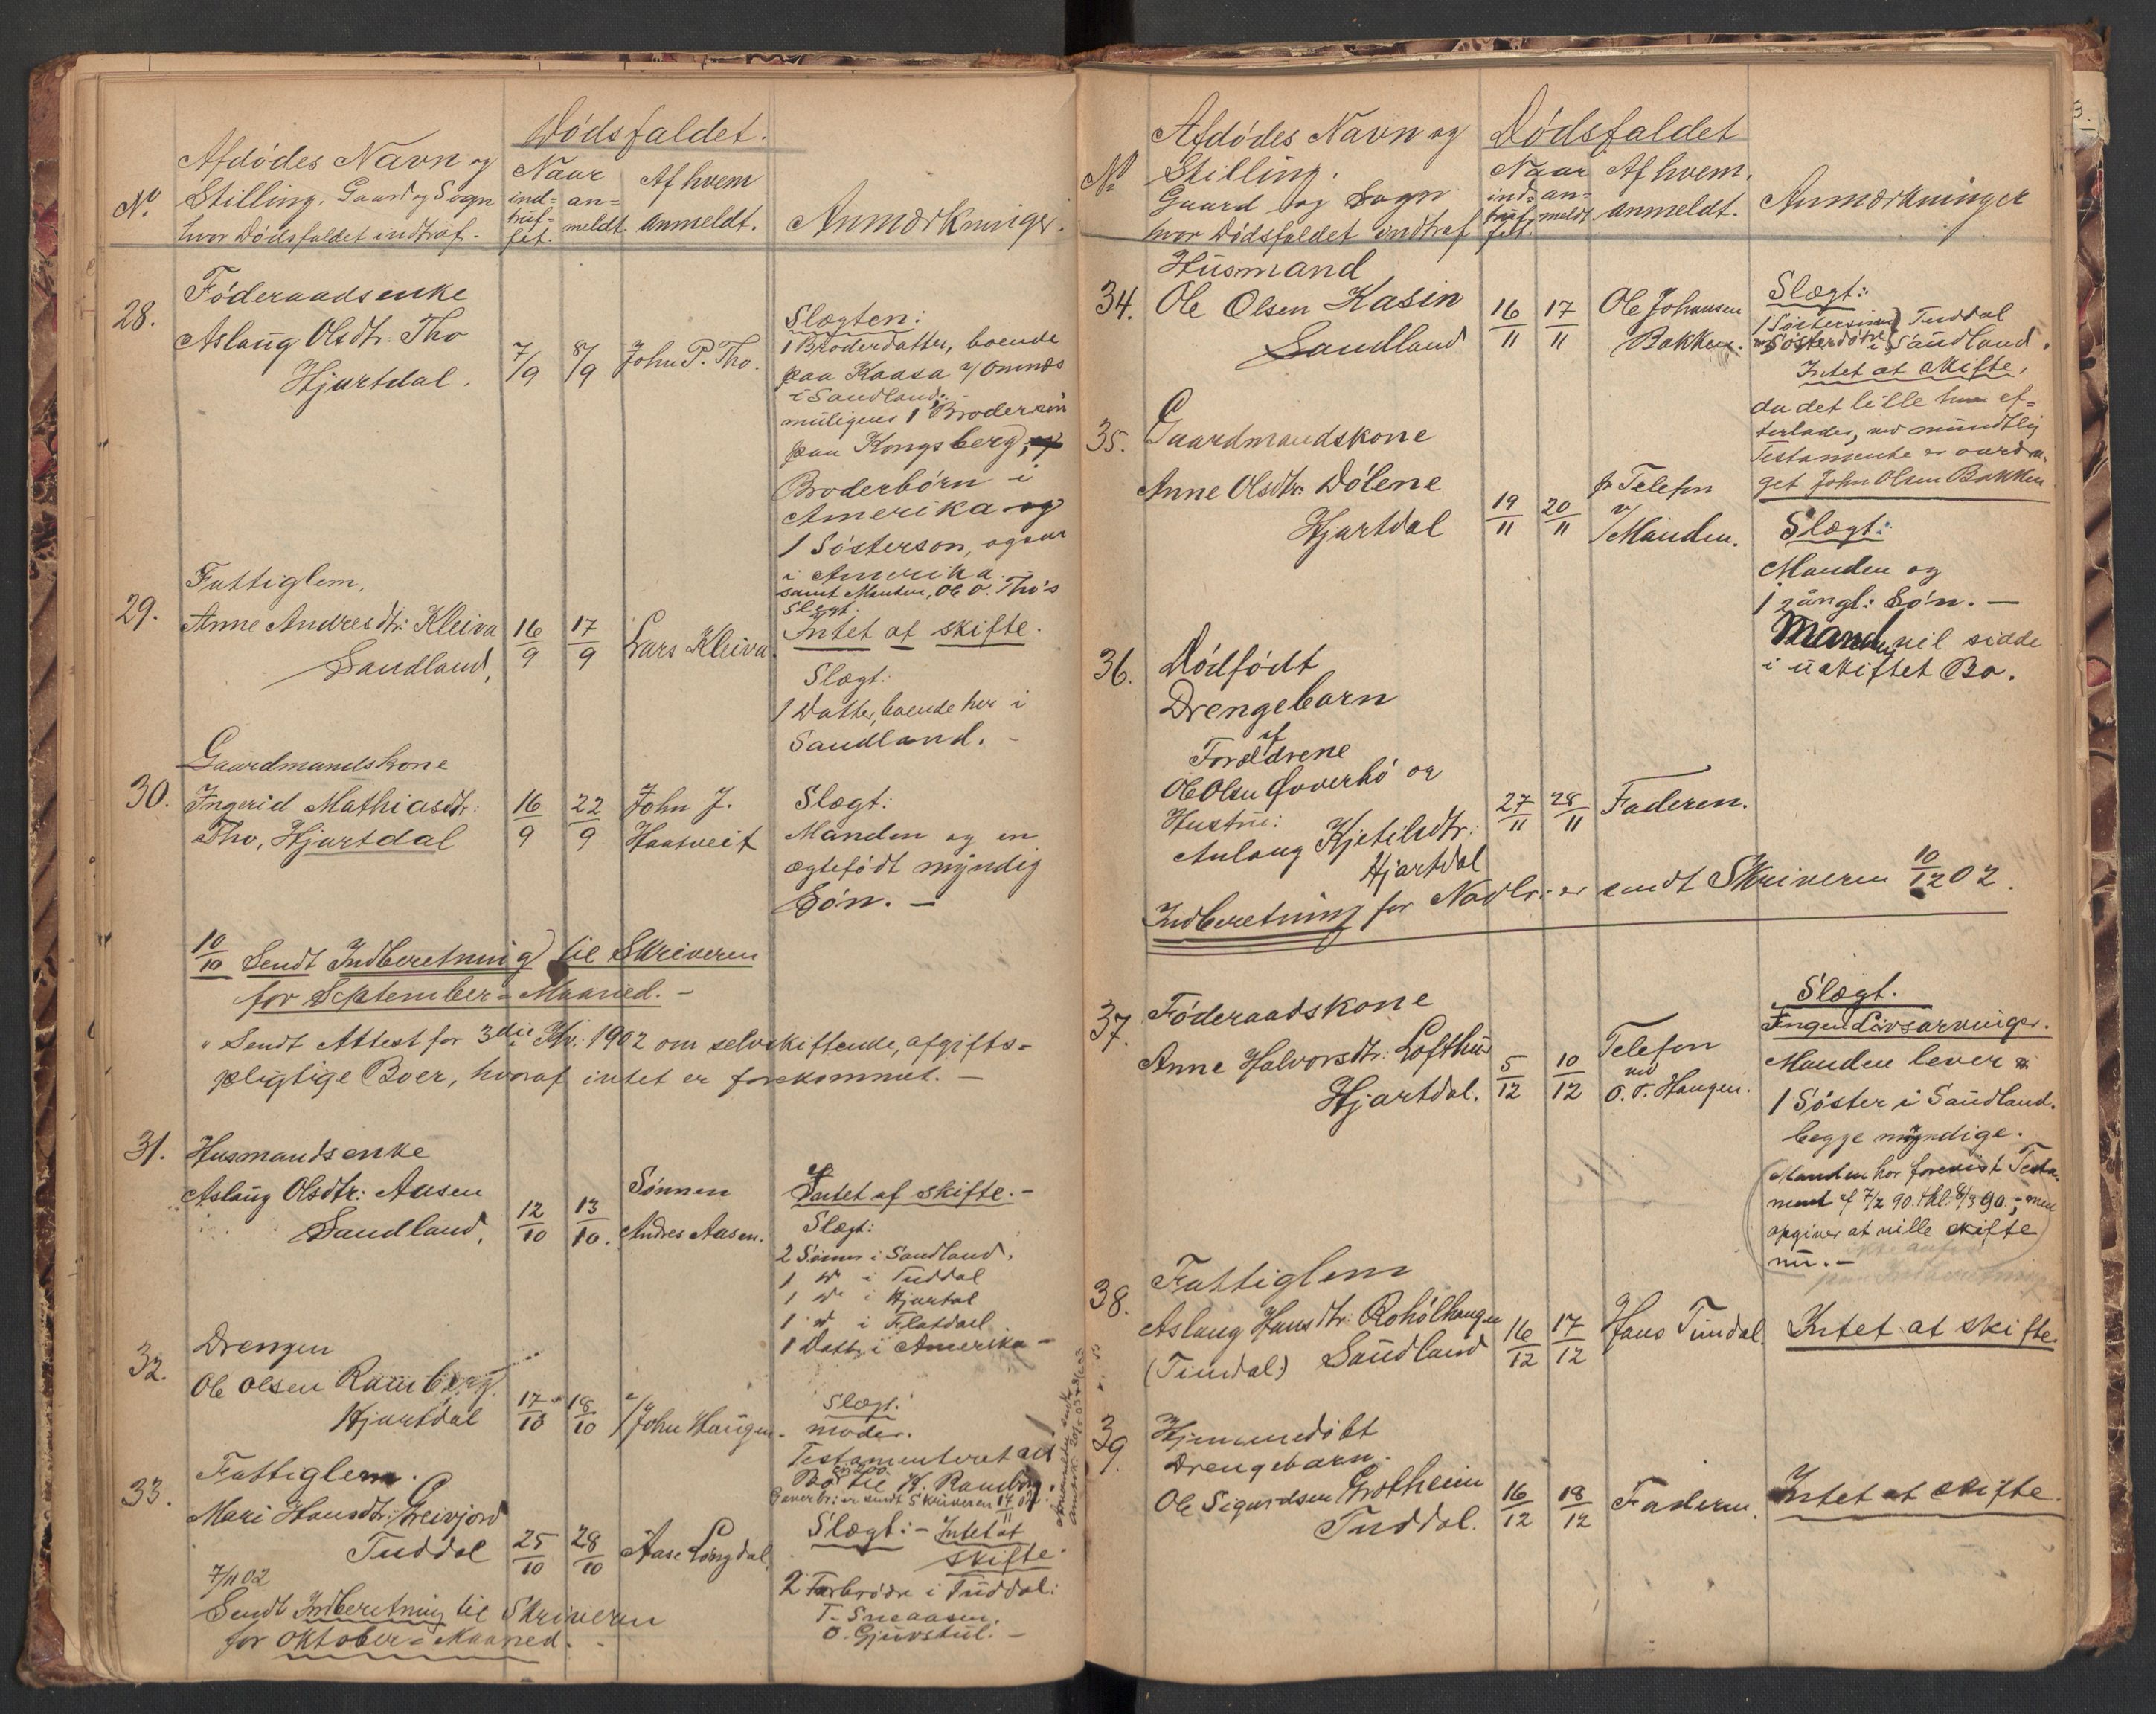 Afdödes Navn og
Stilling. Gaard og Sogn
hvor Dödsfaldet indtraf.
No.
Dödsfaldet.
Naar
ind=
truf=
fet.
an=
meldt.
Af hvem
anmeldt.
Anmærkninger.
28.
Föderaadsenke
Aslaug Olsdtr: Tho
Hjartdal.
7/9
8/9
John P. Tho.
Slægten:
1 Broderdatter, boende
paa Kaasa
i Sandland.
muligens 1 Brodersön
paa Kongsberg,
Broderbörn i
Amerika og
1 Sösterson, ogsaa
i Amerika.
samt Manden, Ole O. Tho's
Slægt.
Intet at skifte.
29.
Fattiglem.
Anne Andresdtr: Kleiva
Sandland,
16/9
17/9
Lars Kleiva
Slægt:
1 Datter, boende her i
Sandland. -
30.
Gaardmandskone
Ingerid Mathiasdtr:
Tho, Hjartdal
16/9
22/9
John J.
Haatveit
Slægt:
Manden og en
ægtefödt myndig
Sön. -
10/10 Sendt Indberetning til Skriveren
for September=Maaned. -
" Sendt Attest for 3die Kv: 1902 om selvskiftende, afgifts=
pligtige Boer, hvoraf intet er forekommet. -
31.
Husmandsenke
Aslaug Olsdtr: Aasen
Sandland,
12/10
13/10.
Sönnen
Andres Aasen.
Intet at skifte. -
Slægt:
2 Sönner i Sandland,
1 " i Tuddal
1 " i Hjartdal
1 " i Flatdal
1 Datter i Amerika -
32.
Drengen
Ole Olsen Ramberg.
Hjartdal
17/10
18/10
v/John Haugen.
Slægt:
moder.
Testamenteret alt
Bo til K. Ramberg.
er sendt Skriveren 14/11 02.
33.
Fattiglem.
Mari Hansdtr: Greivjord
Tuddal
25/10
28/10
Aase Longdal
Slægt: - Intet at
skifte.
2 Farbrödre i Tuddal:
T. Sneaasen.
O. Gjuvstul. -
7/11 02
Sendt Indberetning til Skriveren
for Oktober=Maaned.
No
Afdödes Navn og
Stilling.
Gaard og Sogn
hvor Dödsfaldet indtraf
Dödsfaldet
Naar
ind=
truf=
fet.
an=
meldt
Af hvem.
anmeldt.
Anmærkninger
34.
Husmand
Ole Olsen Kasin
Sandland
16/11
17/11
Ole Johansen
Bakken.
Slægt:
1 Söstersön Tuddal
Sösterdötre i Sandland.
Intet at skifte,
da det lille han ef=
terlader, ved mundtlig
Testamente er overdra=
get John Olsen Bakken
35.
Gaardmandskone
Anne Olsdtr: Dölene
Hjartdal
19/11
20/11
pr Telefon
v/Manden.
Slægt:
Manden og
1 Sön. -
Manden vil sidde
i uskiftet Bo.
36.
Dödfödt
Drengebarn
af
Foreldrene
Ole Olsen Qvverbö og
Hustru:
Aslaug Kjetilsdtr:
Hjartdal
27/11
28/11
Faderen.
Indberetning for Novbr: er sendt Skriveren 10/12 02.
37.
Föderaadskone
Anne Halvorsdtr: Lofthus
Hjartdal.
5/12
10/12
Telefon
ved
O. T. Haugen.
Slægt.
Ingen Livsarvinger.
Manden lever &
1 Söster i Sandland.
begge myndige.
(Manden har forevist Testa=
ment af 7/2 90. thl: 8/3 90. ; men
opgiver at ville skifte
nu. -
38.
Fattiglem
Aslaug Hansdtr: Rohölhaugen
(Tindal) Sandland
16/12
17/12
Hans Tindal
Intet at skifte.
39.
Hjemmedöbt
Drengebarn.
Ole Sigurdsen Grotheim
Tuddal.
16/12
18/12
Faderen.
Intet at skifte.